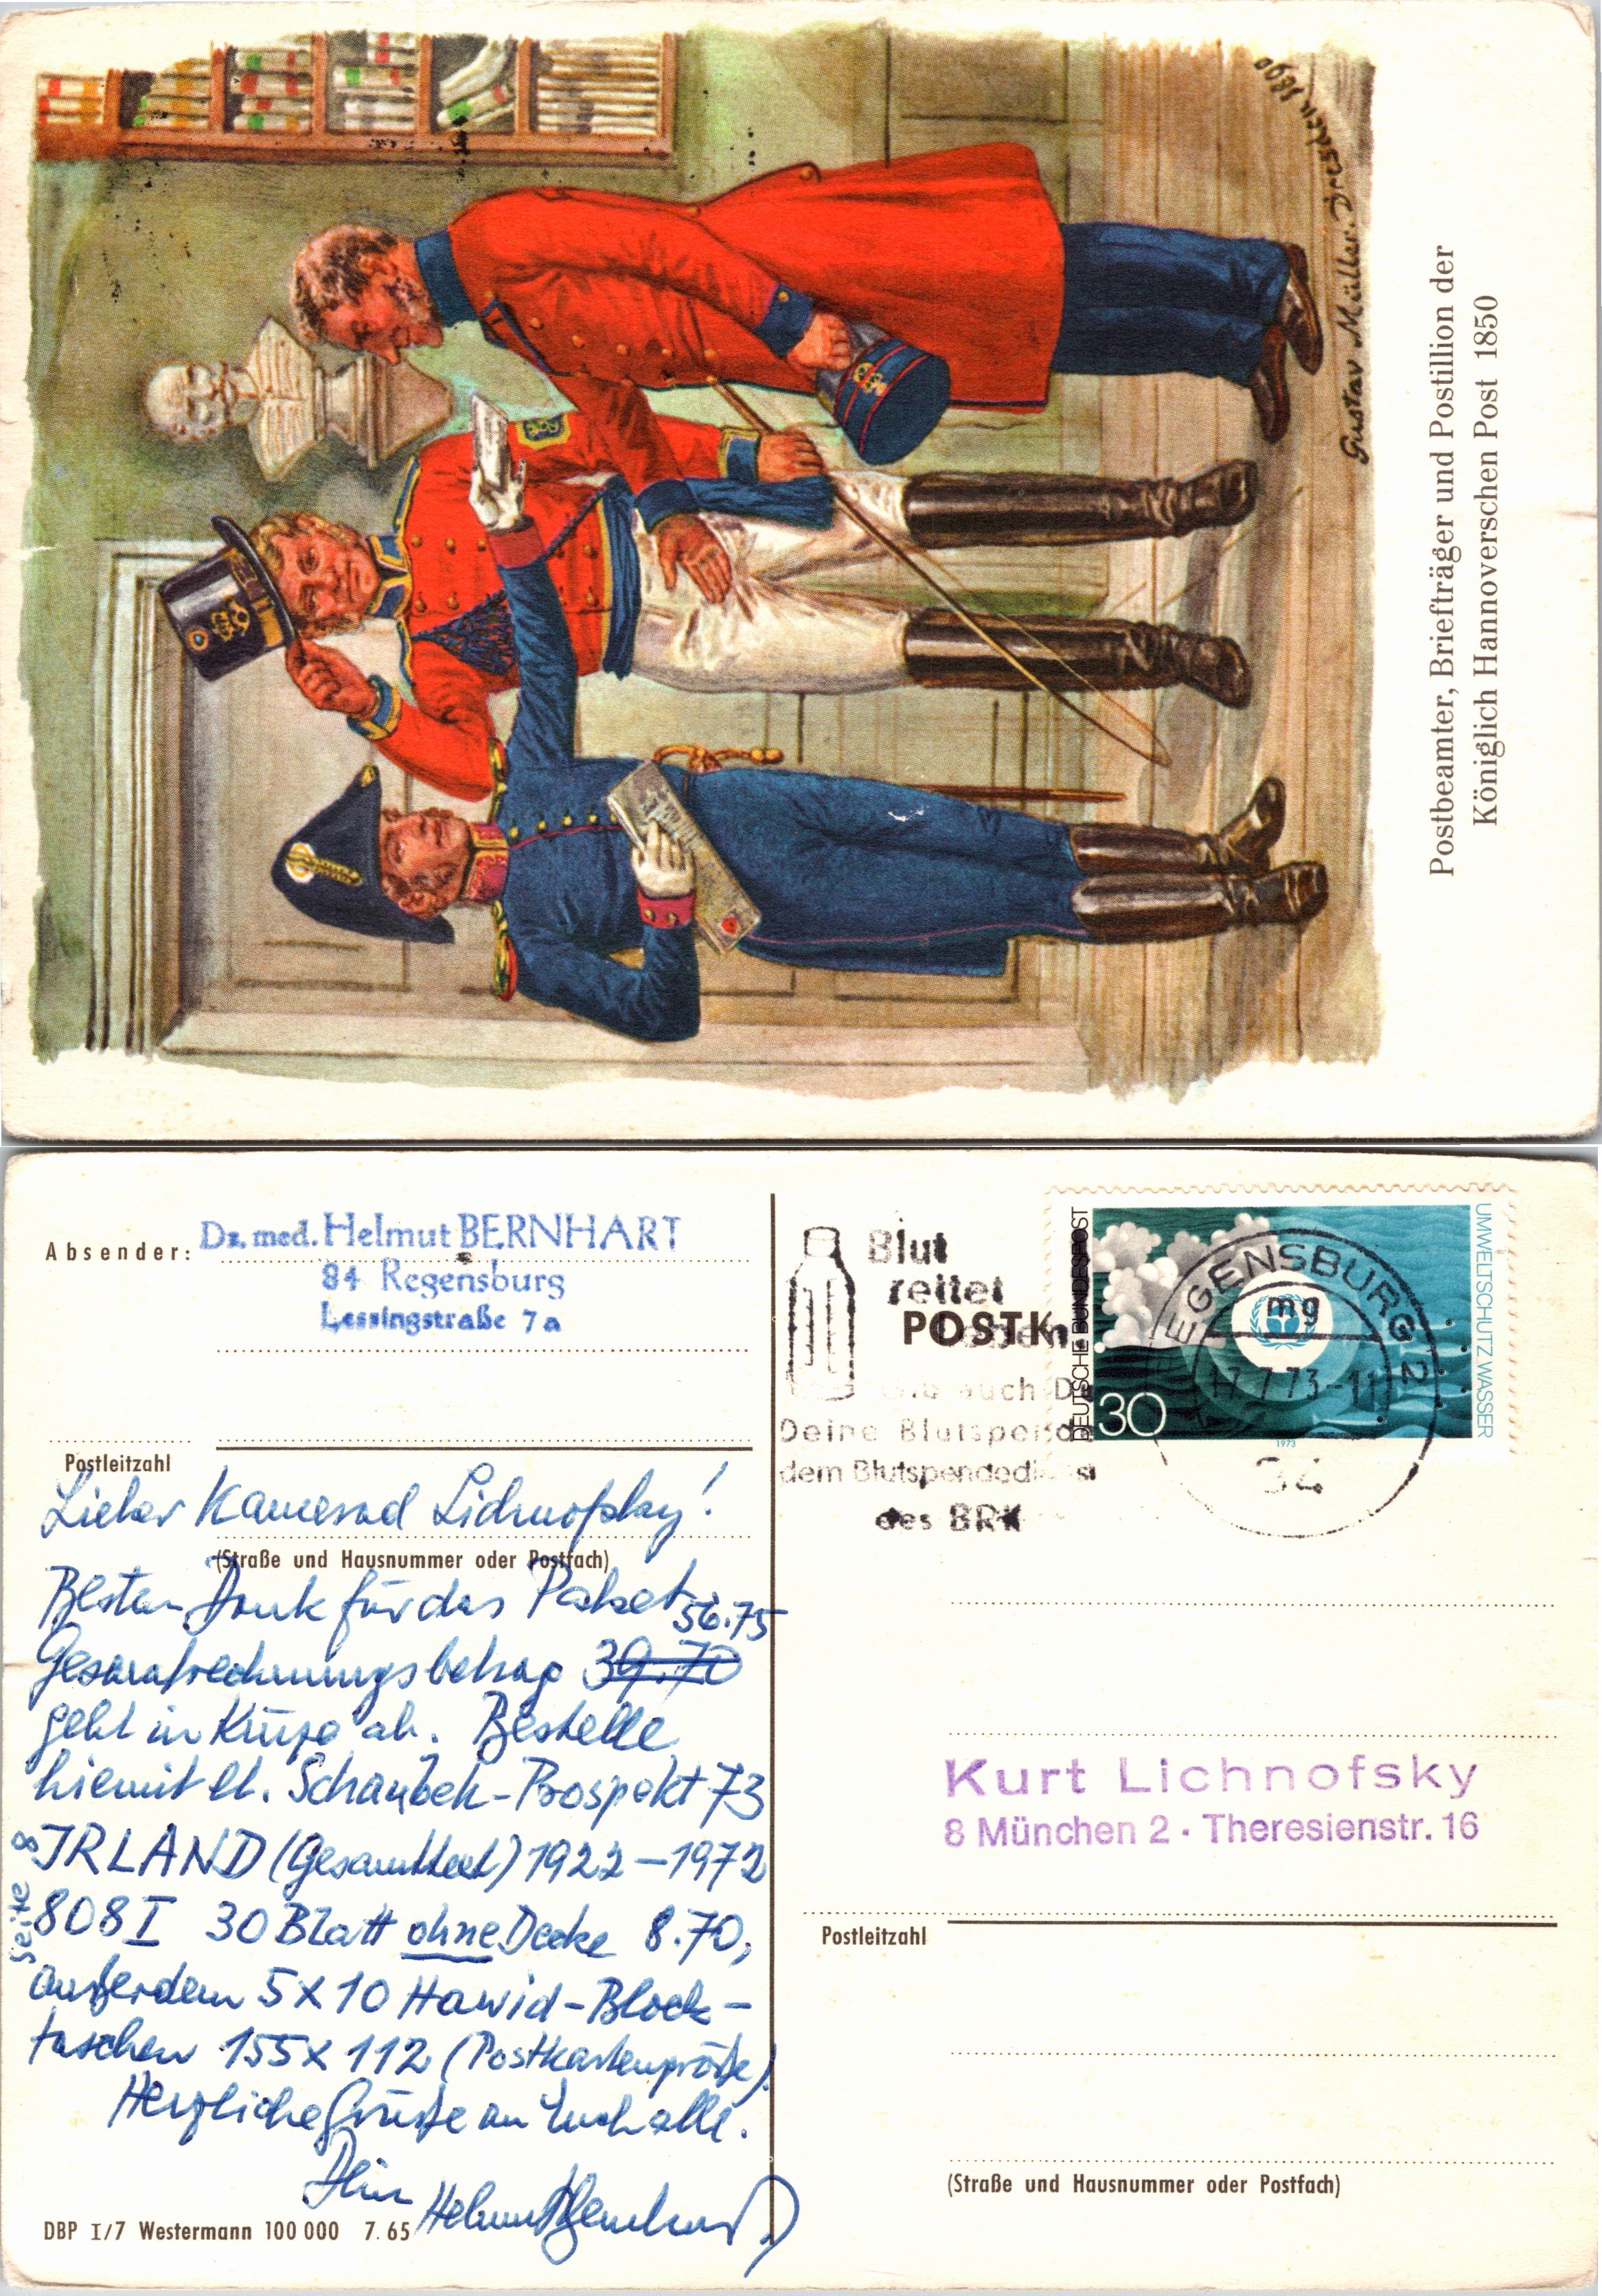 Gustav Müller. Dresden 1890
Postbeamter, Briefträger und Postillion der
Königlich Hannoverschen Post 1850
Absender:
Dr. med. Helmut BERNHART
84 Regensburg
Lessingstraße 7a
Postleitzahl
(Straße und Hausnummer oder Postfach)
Lieber Kamerad Lichnofsky!
Besten Dank für das Paket
56.75
Gesamtrechnungsbetrag 39.70
geht in Kürze ab. Bestelle
hiemit lt. Schaubek-Prospekt 73
Seite 8
IRLAND (Gesamttext) 1922-1972
808 I 30 Blatt ohne Decke 8.70,
außerdem 5X10 Hawid-Block-
taschen 155X112 (Postkartengröße).
Herzliche Grüße an Euch alle.
Dein
Helmut Bernhart
DBP I/7 Westermann 100 000 7. 65
Blut
rettet
POSTK
Leben
Gib auch Du
Deine Blutspende
dem Blutspendedienst
des BRK
DEUTSCHE BUNDESPOST
30
UMWELTSCHUTZ WASSER
1973
REGENSBURG 2
mg
17.7.73-11
84
Kurt Lichnofsky
8 München 2 · Theresienstr. 16
Postleitzahl
(Straße und Hausnummer oder Postfach)